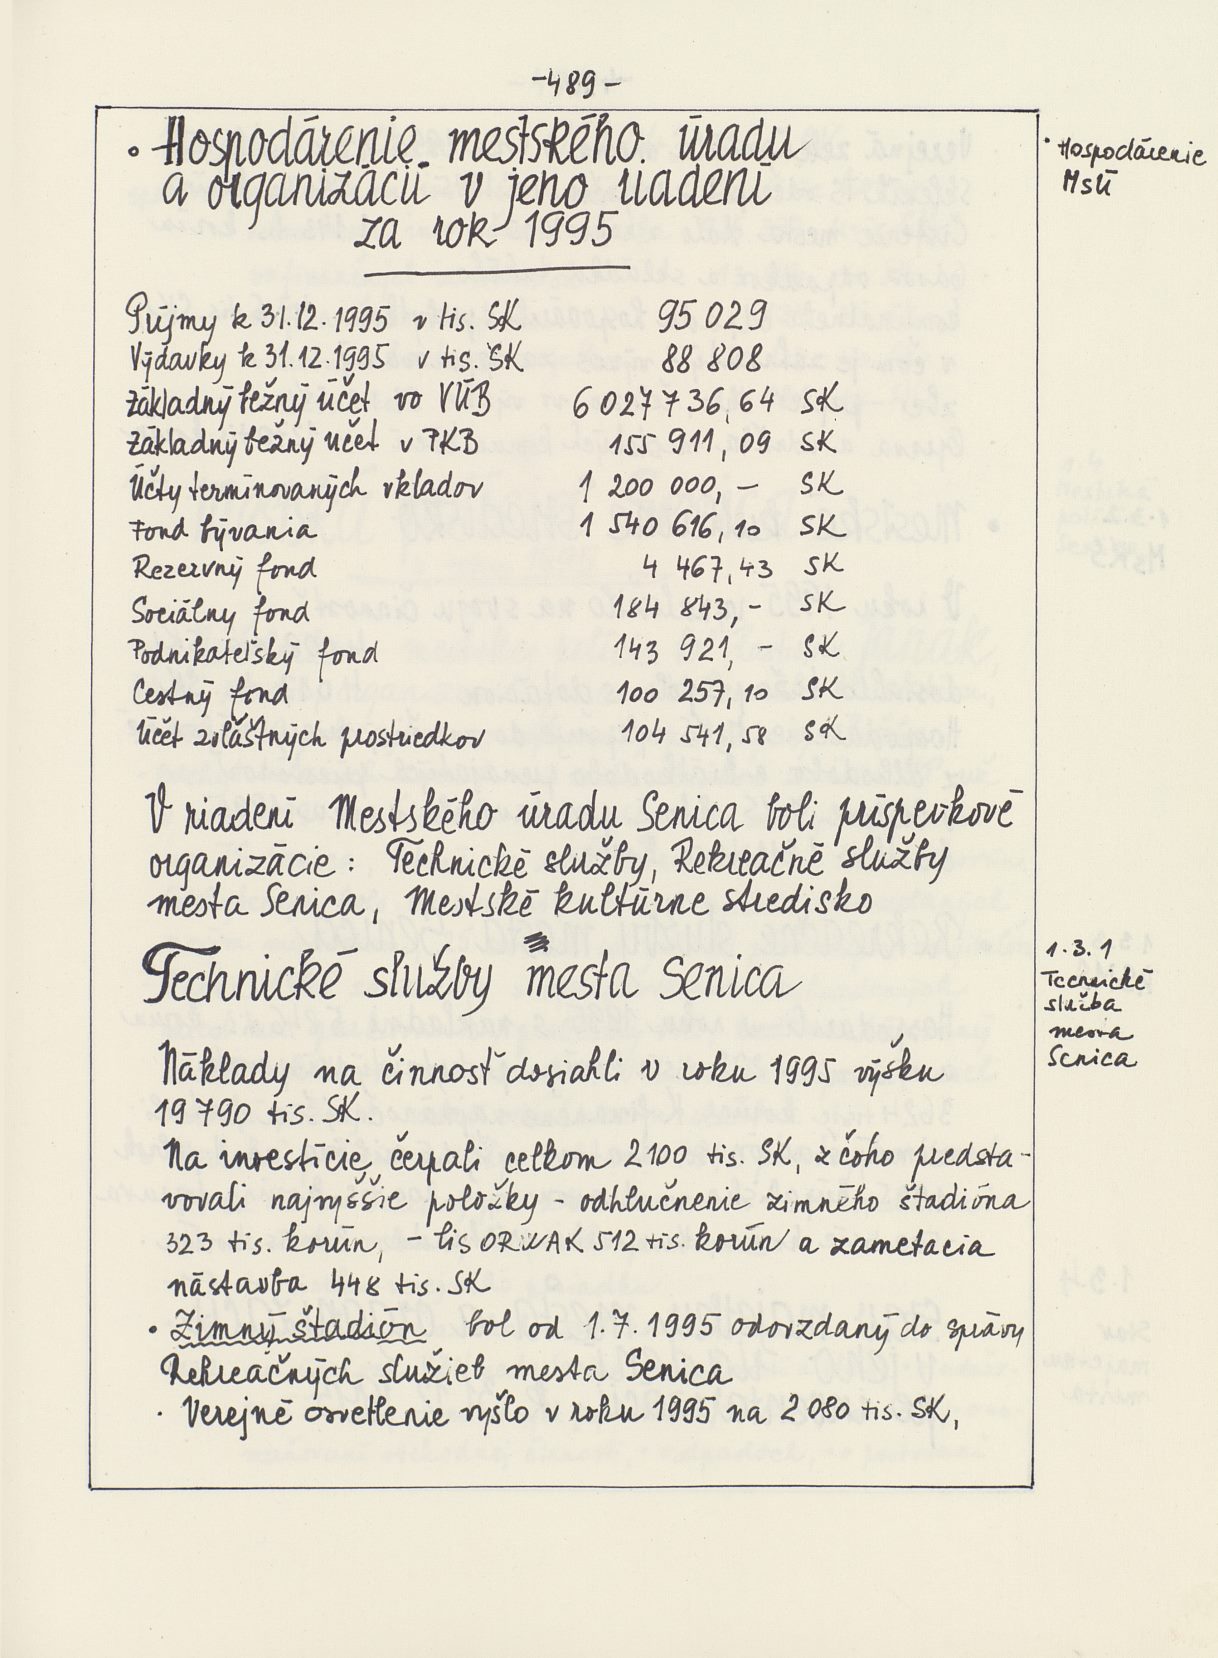 -489-
• Hospodárenie mestského úradu
a organizácií v jeho riadení
za rok 1995
• Hospodárenie
MsÚ
Príjmy k 31.12.1995 v tis. SK 95 029
Výdavky k 31.12.1995 v tis. SK 88 808
Základný bežný účet vo VÚB 6 027 736,64 SK
Základný bežný účet v PKB 155 911,09 SK
Účty termínovaných vkladov 1 200 000,- SK
Fond bývania 1 540 616,10 SK
Rezervný fond 4 467,43 SK
Sociálny fond 184 843,- SK
Podnikateľský fond 143 921,- SK
Cestný fond 100 257,10 SK
Účet zvláštných prostriedkov 104 541,58 SK
V riadení Mestského úradu Senica boli príspevkové
organizácie: Technické služby, Rekreačné služby
mesta Senica, Mestské kultúrne stredisko
Technické služby mesta Senica
1.3.1
Tecnické
služba
mesta
Senica
Náklady na činnosť dosiahli v roku 1995 výšku
19 790 tis. SK.
Na investície čerpali celkom 2100 tis. SK, z čoho predsta-
vovali najvyššie položky - odhlučnenie zimného štadióna
323 tis. korún, - lis ORWAK 512 tis. korún a zametacia
nástavba 448 tis. SK
• Zimný štadión bol od 1.7.1995 odovzdaný do správy
Rekreačných služieb mesta Senica
• Verejné osvetlenie vyšlo v roku 1995 na 2 080 tis. SK,